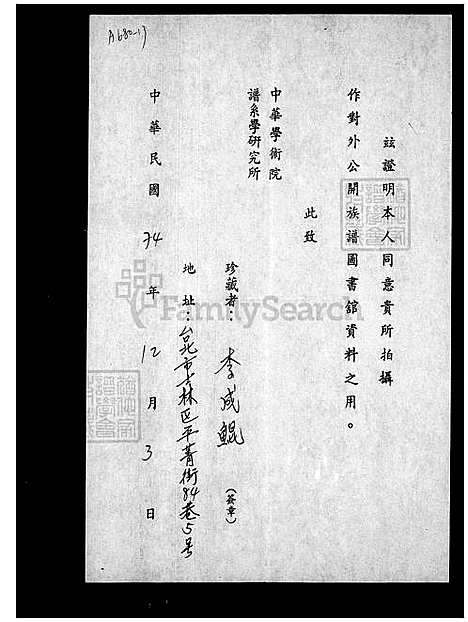 A680-17
茲證明本人同意貴所拍攝
作對外公開族譜圖書館資料之用。
此致
中華學術院
譜系學研究所
珍藏者：李成鯤（簽章）
地址：台北市士林區平菁街84巷5号
中華民國74年12月3日
FamilySearch